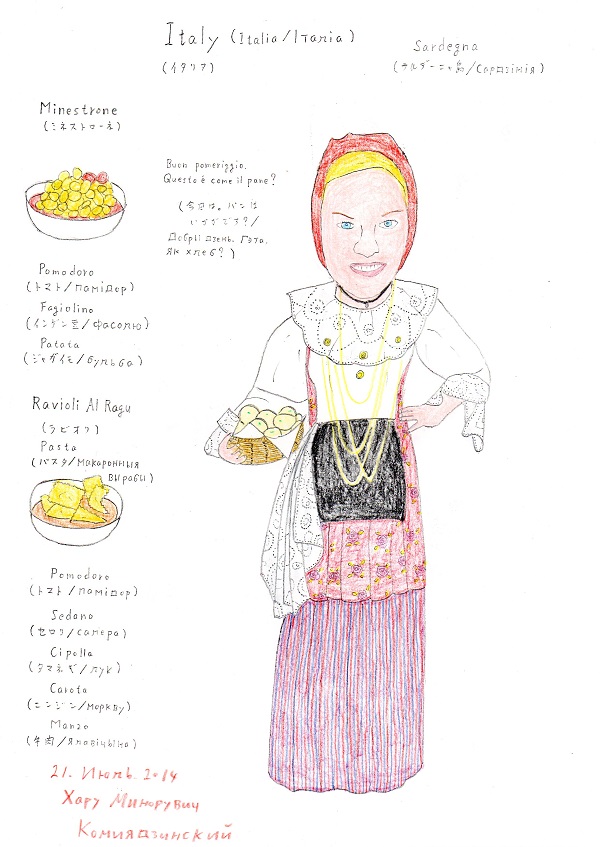 Italy (Italia/Італія)
(イタリア)
Sardegna
(サルデーニャ島/Сардзінія)
Minestrone
(ミネストローネ)
Buon pomeriggio.
Questo è come il pane?
(今日は。パンは
いかがです?/
Добрі дзень. Гэта,
як хлеб?)
Pomodoro
(トマト/памідор)
Fagiolino
(インゲン豆/фасолю)
Patata
(ジャガイモ/бульба)
Ravioli Al Ragu
(ラビオリ)
Pasta
(パスタ/макаронныя
вырабы)
Pomodoro
(トマト/памідор)
Sedano
(セロリ/салера)
Cipolla
(タマネギ/лук)
Carota
(ニンジン/моркву)
Manzo
(牛肉/ялавічына)
21. Июль. 2014
Хару Минорувич
Комиядзинский